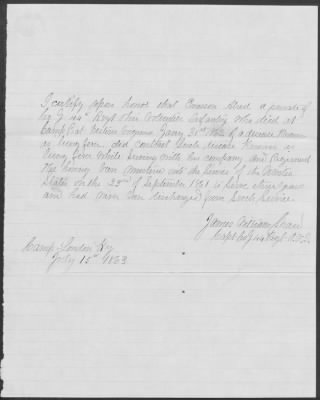 I certify upon honor that Emerson Shad a private of
Co. G 44th Regt Ohio Volunteer Infantry who died at
Camp Piatt Western Virginia Jany 31st 1862 of a disease known
as lung fever did contract such disease known as
lung fever while serving with his company and Regiment
He having been mustered into the service of the United
States on the 23rd of September 1861 to serve three years
and had never been discharged from such service.
James William Shaw
Capt Co G 44 Regt O.V.I.
Camp London Ky
July 15th 1863